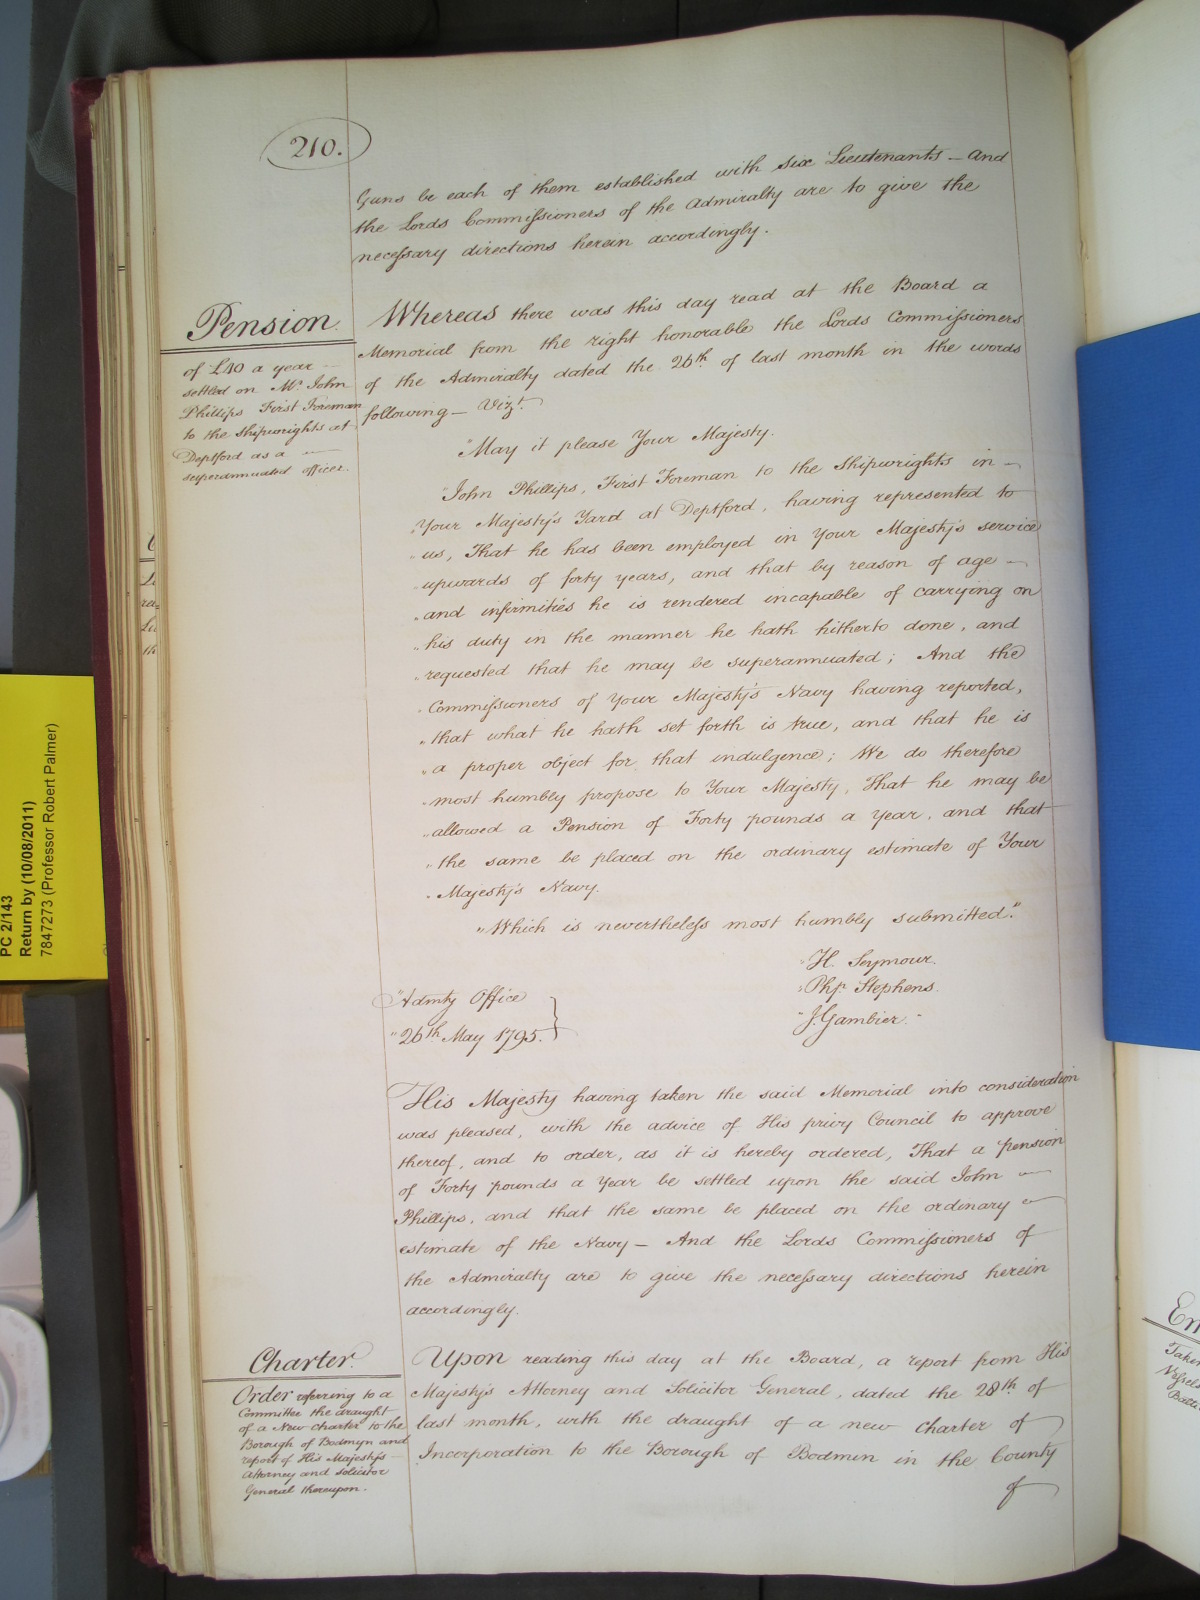 210.
Guns be each of them established with six Lieutenants – And
the Lords Commissioners of the Admiralty are to give the
necessary directions herein accordingly.
Pension
of £40 a year
settled on Mr. John
Phillips First Foreman
to the Shipwrights at
Deptford as a
superannuated officer.
Whereas there was this day read at the Board a
Memorial from the right honorable the Lords Commissioners
of the Admiralty dated the 26th of last month in the words
following – Vizt.
"May it please Your Majesty.
"John Phillips, First Foreman to the Shipwrights in
"Your Majesty's Yard at Deptford, having represented to
"us, That he has been employed in Your Majesty's service
"upwards of forty years, and that by reason of age
"and infirmities he is rendered incapable of carrying on
"his duty in the manner he hath hitherto done, and
"requested that he may be superannuated; And the
"Commissioners of Your Majesty's Navy having reported,
"that what he hath set forth is true, and that he is
"a proper object for that indulgence; We do therefore
"most humbly propose to Your Majesty, That he may be
"allowed a Pension of Forty pounds a Year, and that
"the same be placed on the ordinary estimate of Your
"Majesty's Navy.
"Which is nevertheless most humbly submitted."
"H. Seymour.
"Php. Stephens.
"J. Gambier."
"Admty Office
"26th May 1795.
His Majesty having taken the said Memorial into consideration
was pleased, with the advice of His privy Council to approve
thereof, and to order, as it is hereby ordered, That a pension
of Forty pounds a Year be settled upon the said John
Phillips, and that the same be placed on the ordinary
estimate of the Navy – And the Lords Commissioners of
the Admiralty are to give the necessary directions herein
accordingly.
Charter.
Order referring to a
Committee the draught
of a New Charter to the
Borough of Bodmyn and
report of His Majesty's
Attorney and Solicitor
General thereupon.
Upon reading this day at the Board, a report from His
Majesty's Attorney and Solicitor General, dated the 28th of
last month, with the draught of a new Charter of
Incorporation to the Borough of Bodmin in the County
of
PC 2/143
Return by (10/08/2011)
7847273 (Professor Robert Palmer)